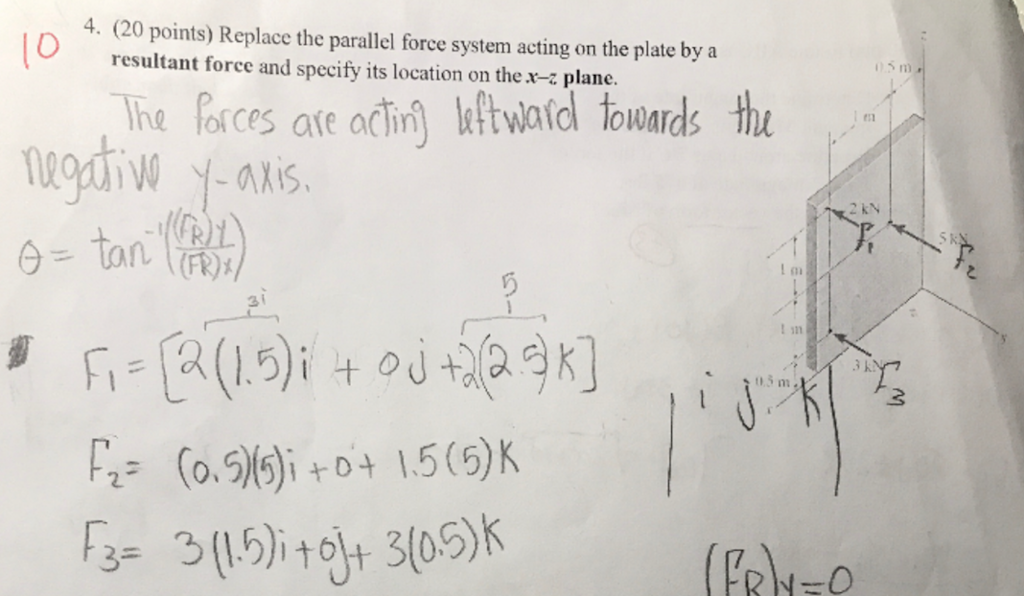 10
4. (20 points) Replace the parallel force system acting on the plate by a
resultant force and specify its location on the x–z plane.
The forces are acting leftward towards the
negative y-axis.
θ = tan⁻¹((FR)y/(FR)x)
3i
5
F₁ = [2(1.5)i + 0j + 2(2.5)k]
F₂ = (0.5)(5)i + 0 + 1.5(5)K
F₃ = 3(1.5)i + 0j + 3(0.5)K
z
0.5 m
1 m
2 kN
F₁
5 kN
F₂
1 m
1 m
3 kN
F₃
0.5 m
i j k
(FR)y=0